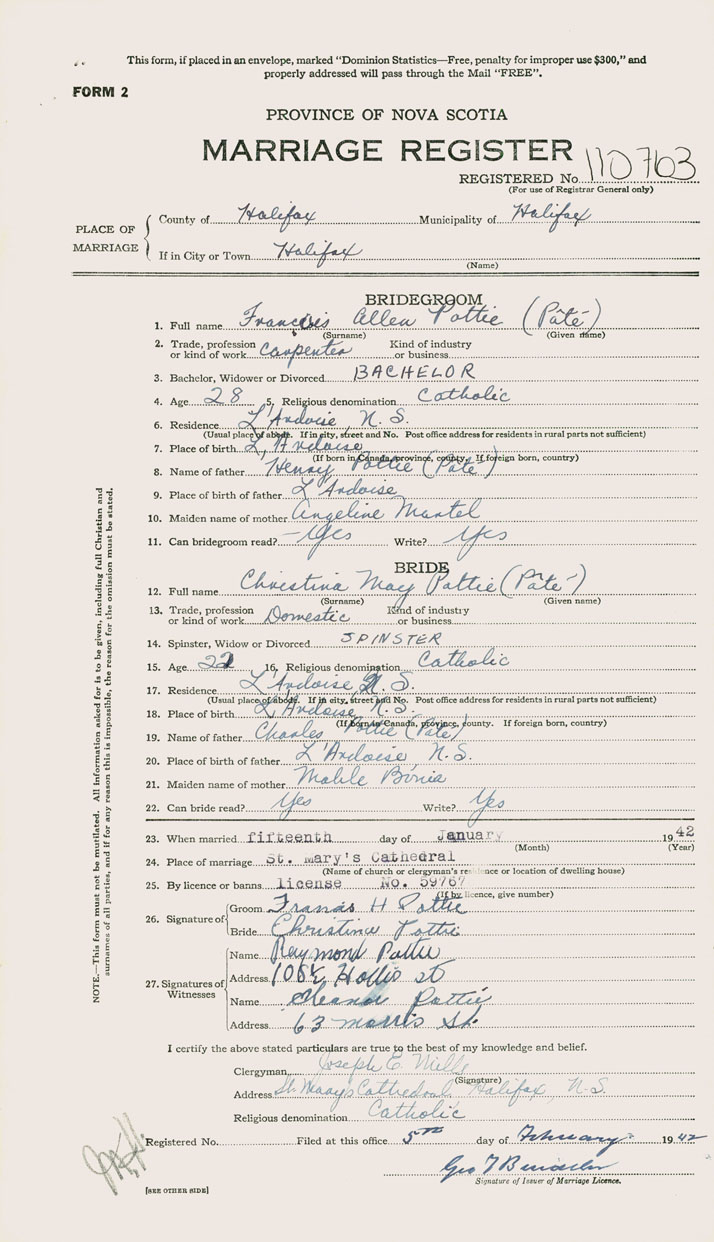 This form, if placed in an envelope, marked “Dominion Statistics—Free, penalty for improper use $300,” and
properly addressed will pass through the Mail “FREE”.
FORM 2
PROVINCE OF NOVA SCOTIA
MARRIAGE REGISTER
REGISTERED No. 110763
(For use of Registrar General only)
PLACE OF MARRIAGE
County of Halifax Municipality of Halifax
If in City or Town Halifax
(Name)
BRIDEGROOM
1. Full name Francis Allen Pottie (Pâté)
(Surname) (Given name)
2. Trade, profession or kind of work carpenter Kind of industry or business
3. Bachelor, Widower or Divorced BACHELOR
4. Age 28 5. Religious denomination Catholic
6. Residence L'Ardoise, N. S.
(Usual place of abode. If in city, street and No. Post office address for residents in rural parts not sufficient)
7. Place of birth L'Ardoise
(If born in Canada, province, county. If foreign born, country)
8. Name of father Henry Pottie (Pâté)
9. Place of birth of father L'Ardoise
10. Maiden name of mother Angeline Martel
11. Can bridegroom read? Yes Write? Yes
BRIDE
12. Full name Christina May Pottie (Pâté)
(Surname) (Given name)
13. Trade, profession or kind of work Domestic Kind of industry or business
14. Spinster, Widow or Divorced SPINSTER
15. Age 22 16. Religious denomination Catholic
17. Residence L'Ardoise N. S.
(Usual place of abode. If in city, street and No. Post office address for residents in rural parts not sufficient)
18. Place of birth L'Ardoise, N. S.
(If born in Canada, province, county. If foreign born, country)
19. Name of father Charles Pottie (Pâté)
20. Place of birth of father L'Ardoise N. S.
21. Maiden name of mother
22. Can bride read? Yes Write? Yes
23. When married fifteenth day of January 1942
(Month) (Year)
24. Place of marriage St. Mary's Cathedral
(Name of church or clergyman's residence or location of dwelling house)
25. By licence or banns license No. 59767
(If by licence, give number)
26. Signature of Groom Francis H Pottie
Bride Christina Pottie
27. Signatures of Witnesses
Name Raymond Pottie
Address Hollis st
Name Eleanor Pottie
Address 63 Morris St.
I certify the above stated particulars are true to the best of my knowledge and belief.
Clergyman Joseph E. Mills
(Signature)
Address St. Mary's Cathedral, Halifax, N.S.
Religious denomination Catholic
Registered No. Filed at this office 5th day of February 1942
Geo T
Signature of Issuer of Marriage Licence.
[SEE OTHER SIDE]
NOTE.—This form must not be mutilated. All information asked for is to be given, including full Christian and
surnames of all parties, and if for any reason this is impossible, the reason for the omission must be stated.